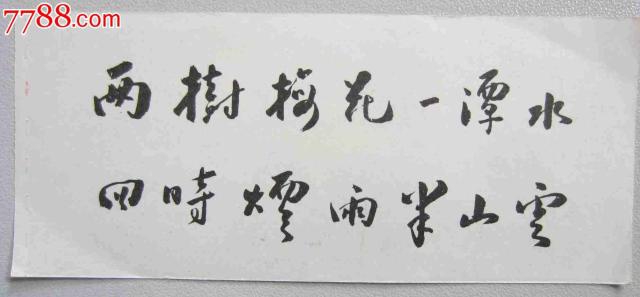 7788.com
两樹梅花一潭水
四時煙雨半山雲